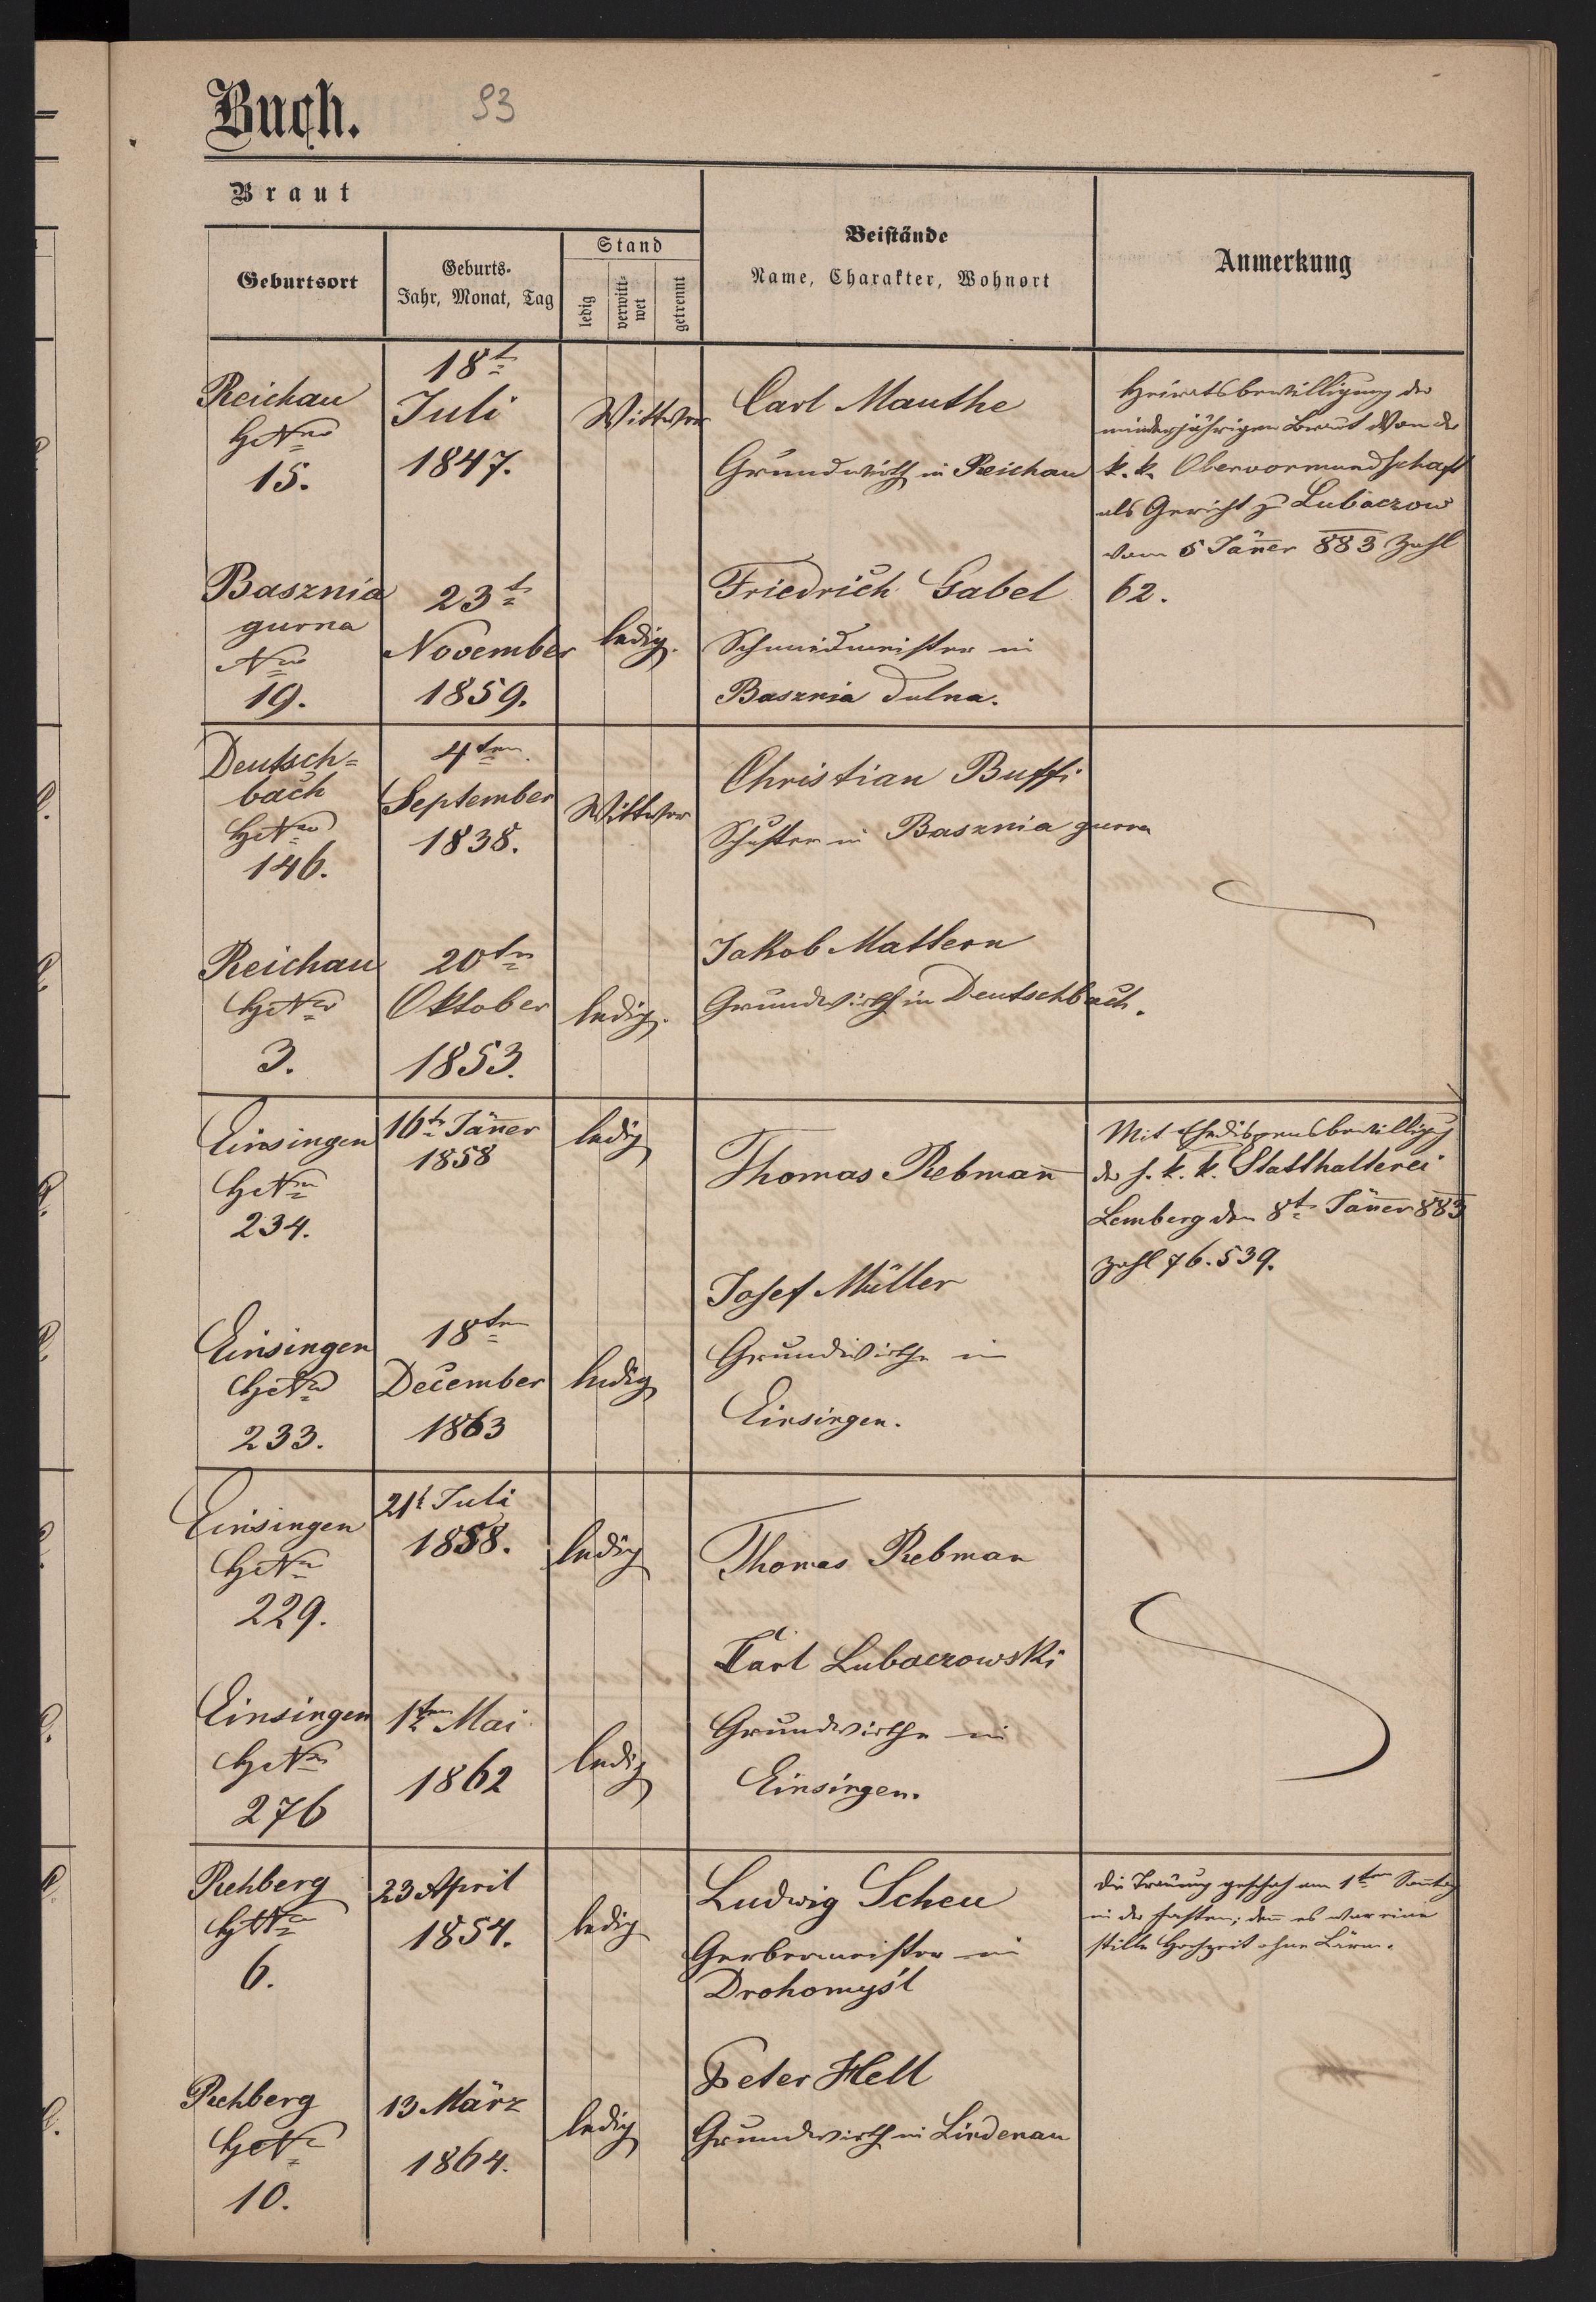 Buch.
93
Braut
Geburtsort
Geburts-
Jahr, Monat, Tag
Stand
ledig
verwitt-
wet
getrennt
Beistände
Name, Charakter, Wohnort
Anmerkung
Reichau
HNro
15.
18t
Juli
1847.
Wittwer
Carl Manthe
Grundwirth in Reichau
Heiratsbewilligung der
minderjährigen Braut von der
k. k. Obervormundschaft
als Gericht zu Lubaczow
vom 5 Jäner 883 Zahl
62.
Basznia
gurna
Nro
19.
23t
November
1859.
ledig.
Friedrich Gabel
Schmiedmeister in
Basznia dulna.
Deutsch=
bach
HNro
146.
4ten
September
1838.
Wittwer
Christian Buffi
Schuster in Basznia gurna
Reichau
HNro
3.
20ten
Oktober
1853.
ledig.
Jakob Mattern
Grundwirth in Deutschbach.
Einsingen
HNro
234.
16ten Jäner
1858
ledig
Thomas Rebman̄
Mit Ehedispensbewilligung
der h. k. k. Statthalterei
Lemberg den 8t Jäner 883
Zahl 76.539.
Einsingen
HNro
233.
18ten
December
1863
ledig
Josef Müller
Grundwirthe in
Einsingen.
Einsingen
HNro
229.
21t Juli
1858.
ledig
Thomas Rebman
Karl Lubaczowski
Grundwirthe in
Einsingen.
Einsingen
HNro
276
1ten Mai
1862
ledig
Rehberg
HNro
6.
23 April
1854.
ledig
Ludwig Scheu
Gerbermeister in
Drohomyśl
Die Trauung geschah am 1ten Sonntag
in der Fasten; den̄ es war eine
stille Hochzeit ohne Lärm.
Rehberg
HNro
10.
13 März
1864.
ledig
Peter Hell
Grundwirth in Lindenau